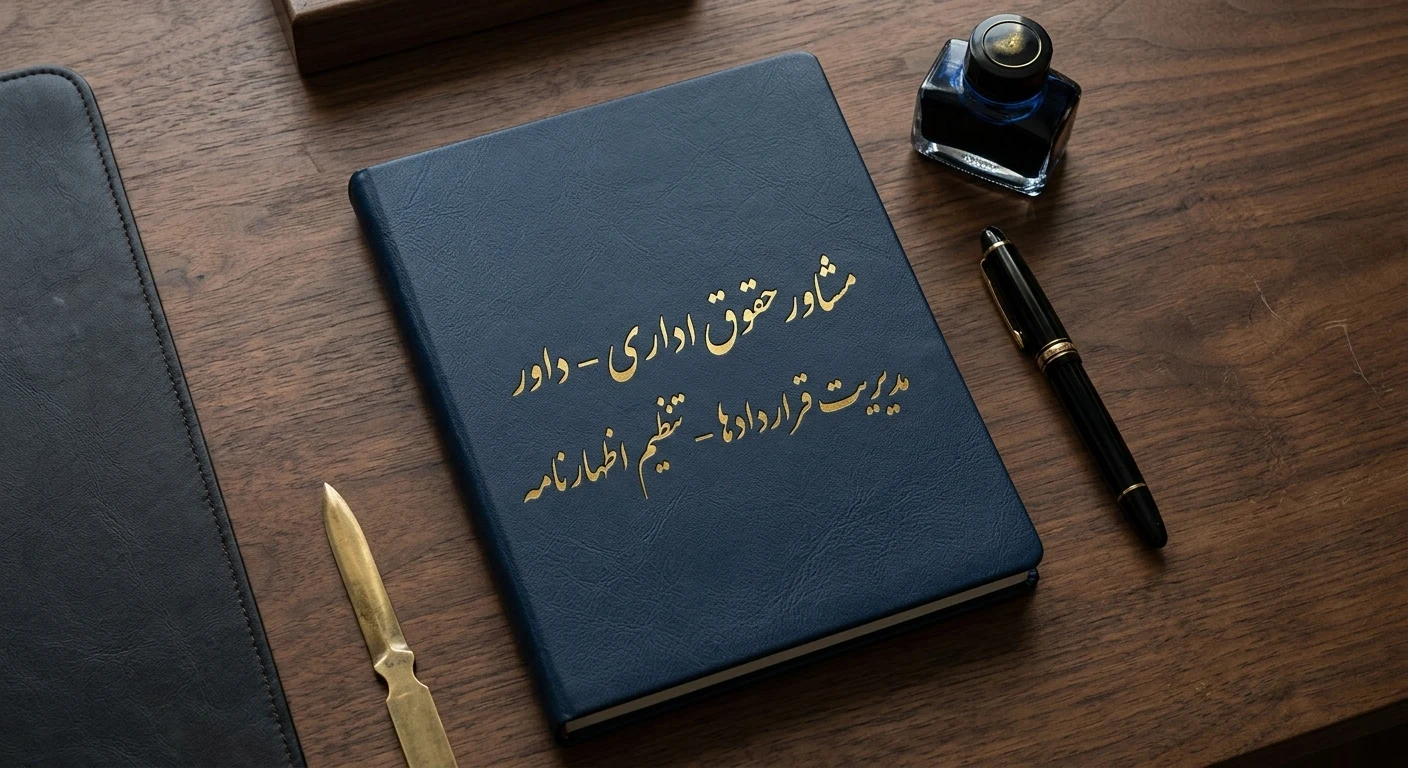 مشاور حقوق اداری – داور
مدیریت قراردادها – تنظیم اظهارنامه